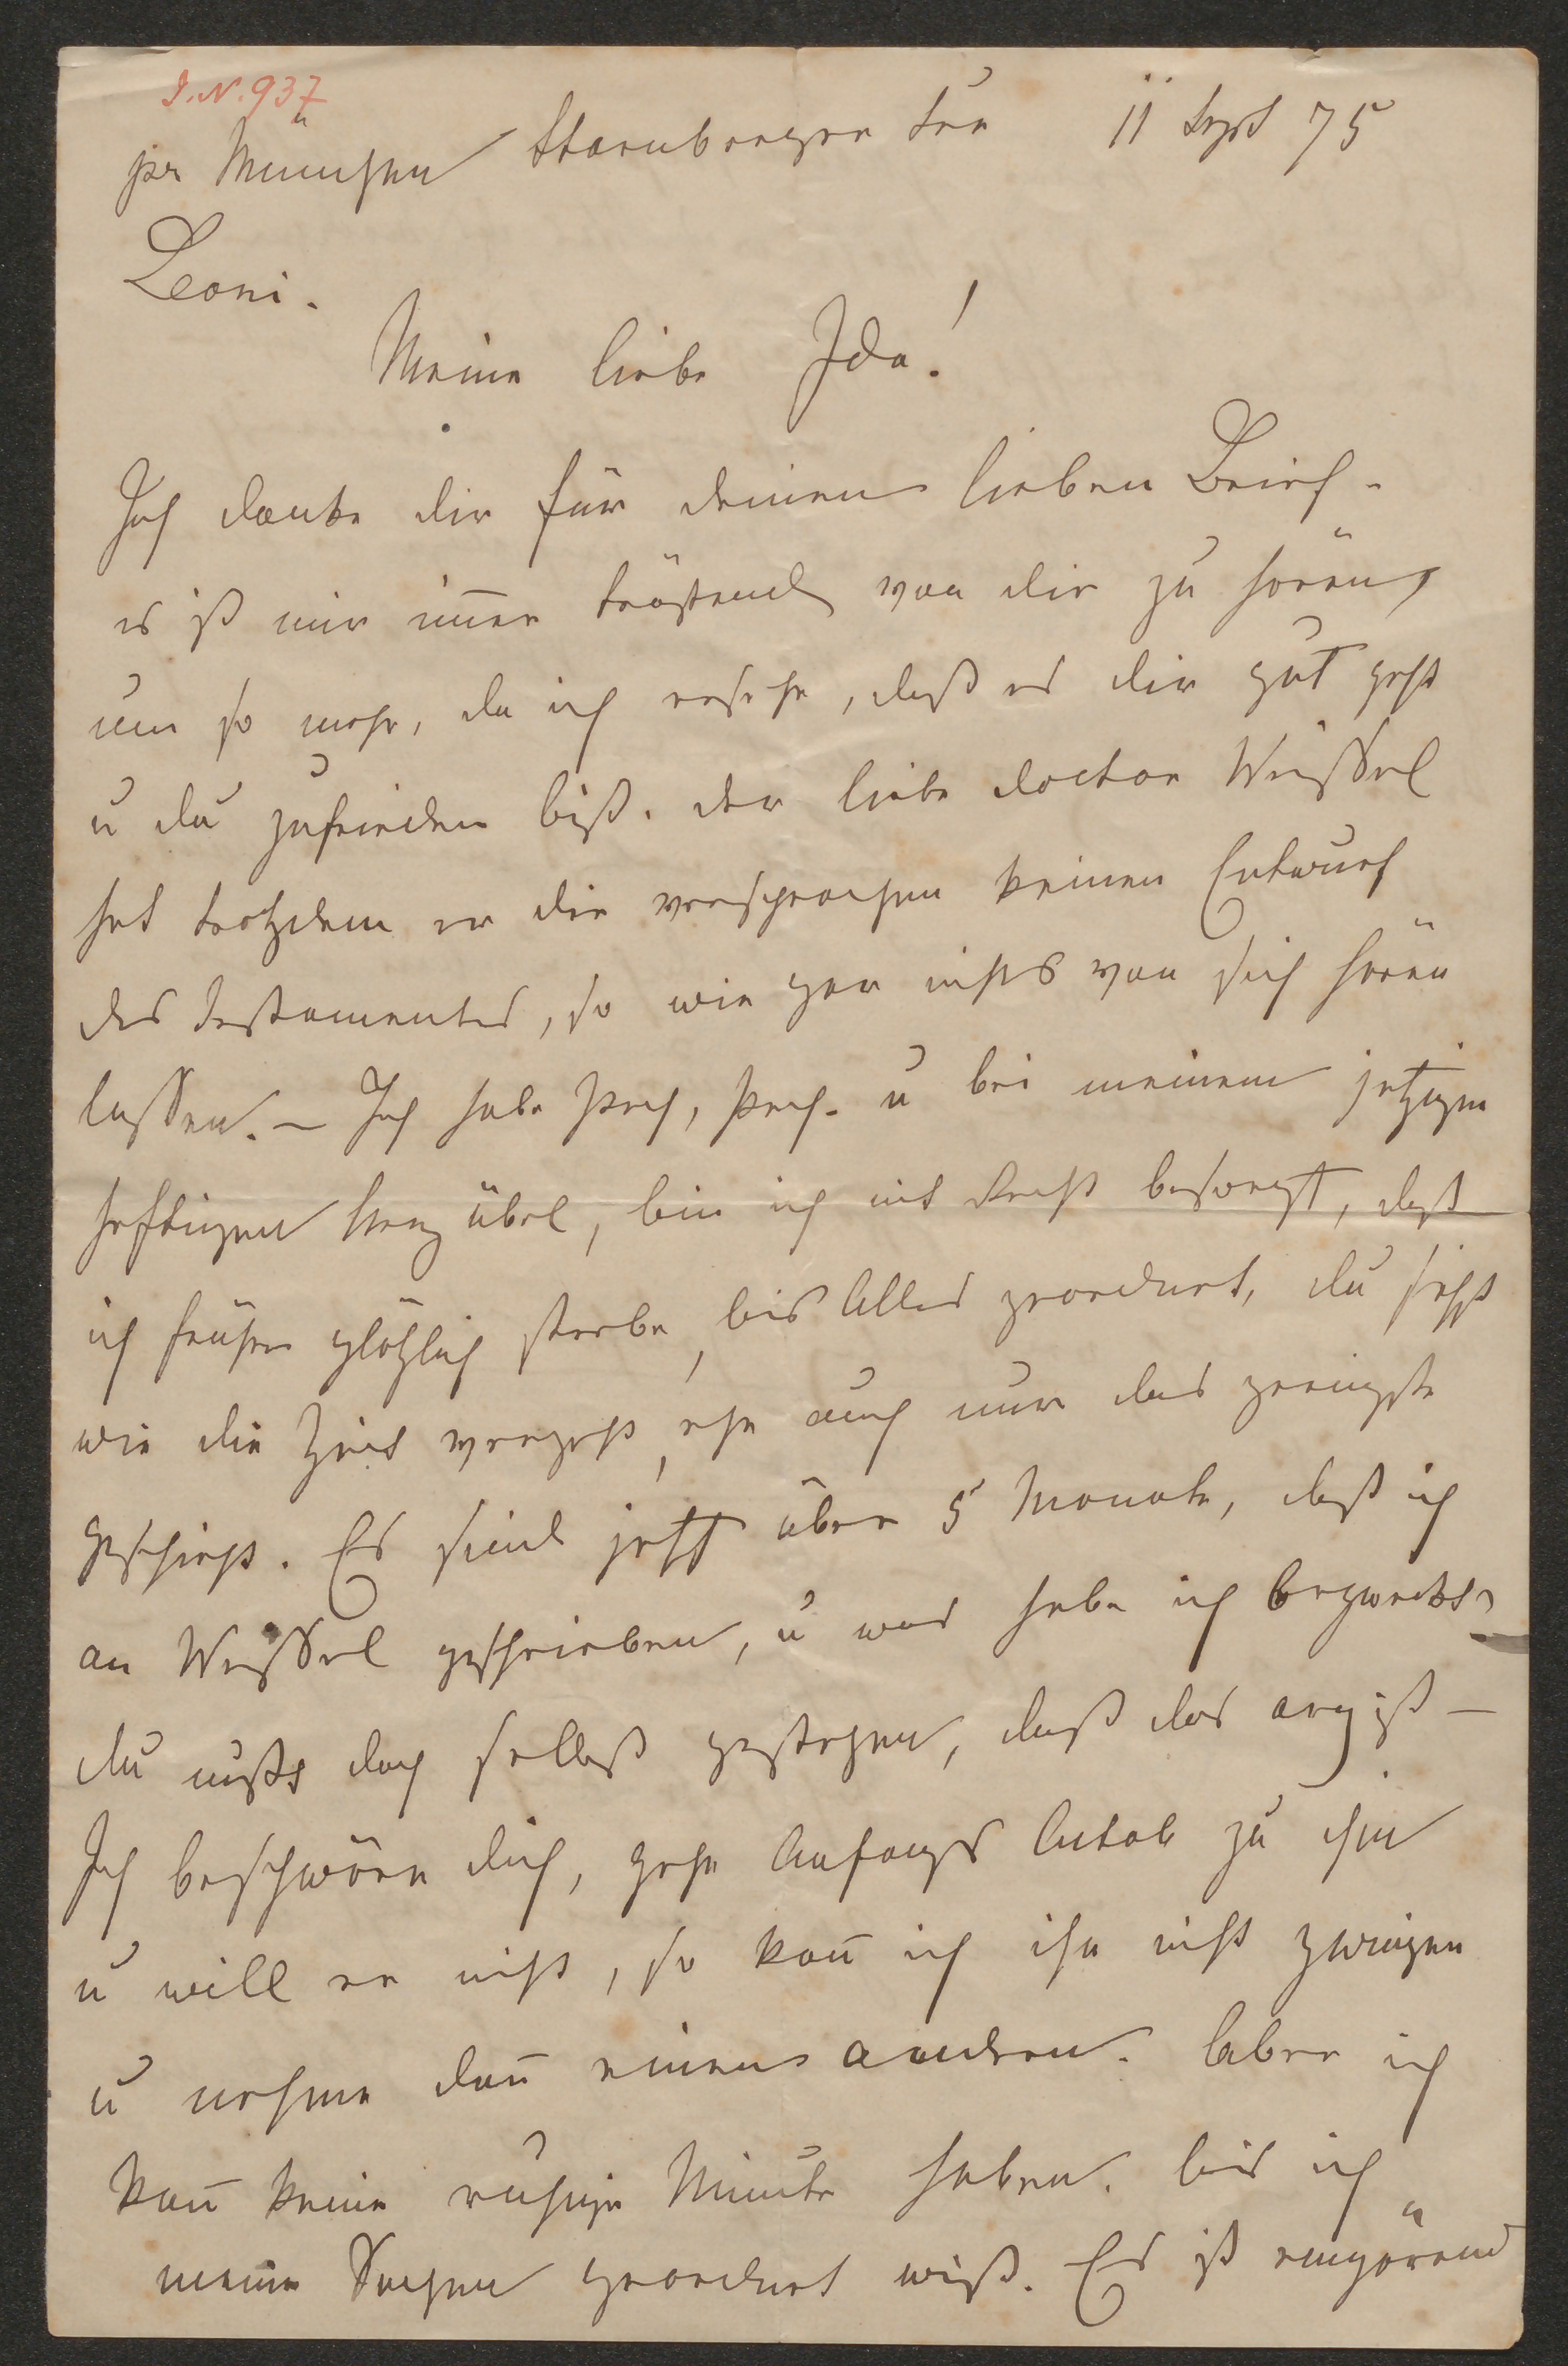 I.N. 937
pr München Starnberger See 11 Sept 75
Leoni.
Meine liebe Ida!
Ich danke dir für deinen lieben Brief -
es ist mir im̅er tröstend von dir zu hören,
um so mehr, da ich ersehe, daß es dir gut geht
u du zufrieden bist. der liebe doctor Weissel
hat trotzdem er dir versprochen keinen Entwurf
des Testamentes, so wie gar nichts von sich hören
lassen. – Ich habe Pech, Pech. u bei meinem jetzigen
heftigen Herz übel, bin ich mit Recht besorgt, daß
ich früher plötzlich sterbe, bis Alles geordnet, du siehst
wie die Zeit vergeht, ehe auch nur das geringste
geschieht. Es sind jetzt über 5 Monate, daß ich
an Weissel geschrieben, u was habe ich bezweckt,
du mußt doch selbst gestehen, daß das arg ist –
Ich beschwöre dich, gehe Anfangs Octob zu ihm
u will er nicht, so kan̅ ich ihn nicht zwingen
u nehme dan̅ einen andern. Aber ich
kan̅ keine ruhige Minute haben. bis ich
meine Sachen geordnet weiß. Es ist empörend